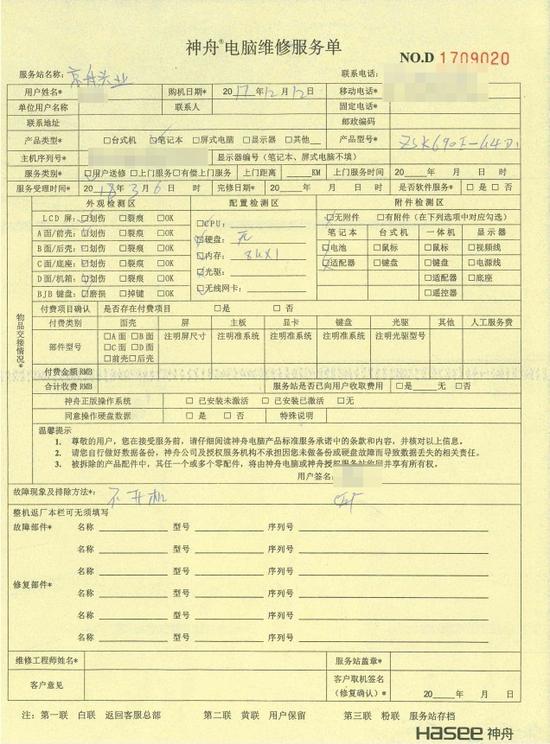 神舟®电脑维修服务单
NO.D 1709020
服务站名称: 联系电话:
用户姓名* 购机日期* 2017年12月12日 移动电话*
单位用户名称 联系人 固定电话*
联系地址 邮政编码
产品类型* □台式机 □笔记本 □屏式电脑 □显示器 □其他 产品型号*
主机序列号* 显示器编号（笔记本、屏式电脑不填）
服务类别* □用户送修 □上门服务 □有偿上门服务 上门距离 KM 上门服务时间 20 年 月 日 时
服务受理时间* 2018年3月6日 时 完修日期* 20 年 月 日 时 是否软件服务* □是 □否
物品交接情况*
外观检测区 配置检测区 附件检测区
LCD 屏: □划伤 □裂痕 □OK
A面/前壳: □划伤 □裂痕 □OK
B面/后壳: □划伤 □裂痕 □OK
C面/底座: □划伤 □裂痕 □OK
D面/机箱: □划伤 □裂痕 □OK
BJB 键盘: □磨损 □掉键 □OK
□CPU:
□硬盘: 无
□内存: 8GX1
□光驱:
□无线网卡:
□无附件 □有附件（在下列选项中对应勾选）
笔记本 台式机 一体机 显示器
□电池 □鼠标 □鼠标 □视频线
□适配器 □键盘 □键盘 □电源线
□适配器 □底座
□遥控器
付费项目确认 是否存在付费项目 □是 □否
付费类别 面壳 屏 主板 显卡 键盘 光驱 其他 人工服务费
部件型号 □A面 □B面 □C面 □D面 □前壳□后壳 注明屏尺寸 注明准系统 注明准系统 注明准系统 注明光驱型号
付费金额 RMB
合计收费 RMB 服务站是否已向用户收取费用 □是 元 □否
神舟正版操作系统 □已安装未激活 □已安装已激活 □无
同意操作硬盘数据 □是 □否 特殊说明
温馨提示
1. 尊敬的用户，您在接受服务前，请仔细阅读神舟电脑产品标准服务承诺中的条款和内容，并核对以上信息。
2. 请您自行做好数据备份，神舟公司及授权服务机构不承担因您未做备份或硬盘故障而导致数据丢失的相关责任。
3. 被拆除的产品配件中，其任一个或多个零配件，将由神舟电脑或神舟授权服务站收回并享有所有权。
用户签名:
故障现象及排除方法*: 不开机
整机返厂本栏可无须填写
故障部件* 名称 型号 序列号
名称 型号 序列号
名称 型号 序列号
修复部件* 名称 型号 序列号
名称 型号 序列号
名称 型号 序列号
维修工程师姓名* 服务站盖章*
客户意见 客户取机签名（修复确认）* 20 年 月 日
注: 第一联 白联 返回客服总部 第二联 黄联 用户保留 第三联 粉联 服务站存档
Hasee 神舟